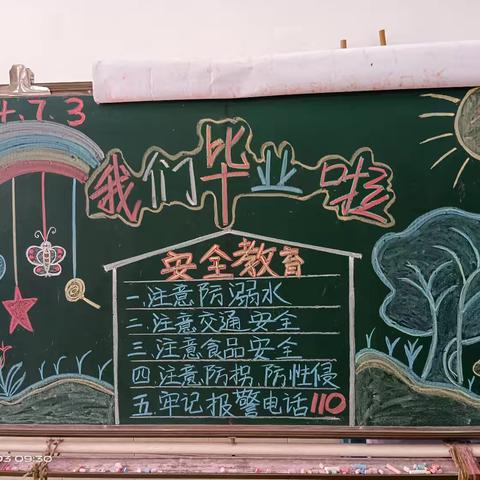 4.7.3
我们毕业啦
安全教育
一.注意防溺水
二.注意交通安全
三.注意食品安全
四.注意防拐.防性侵
五.牢记报警电话110
03 09:30